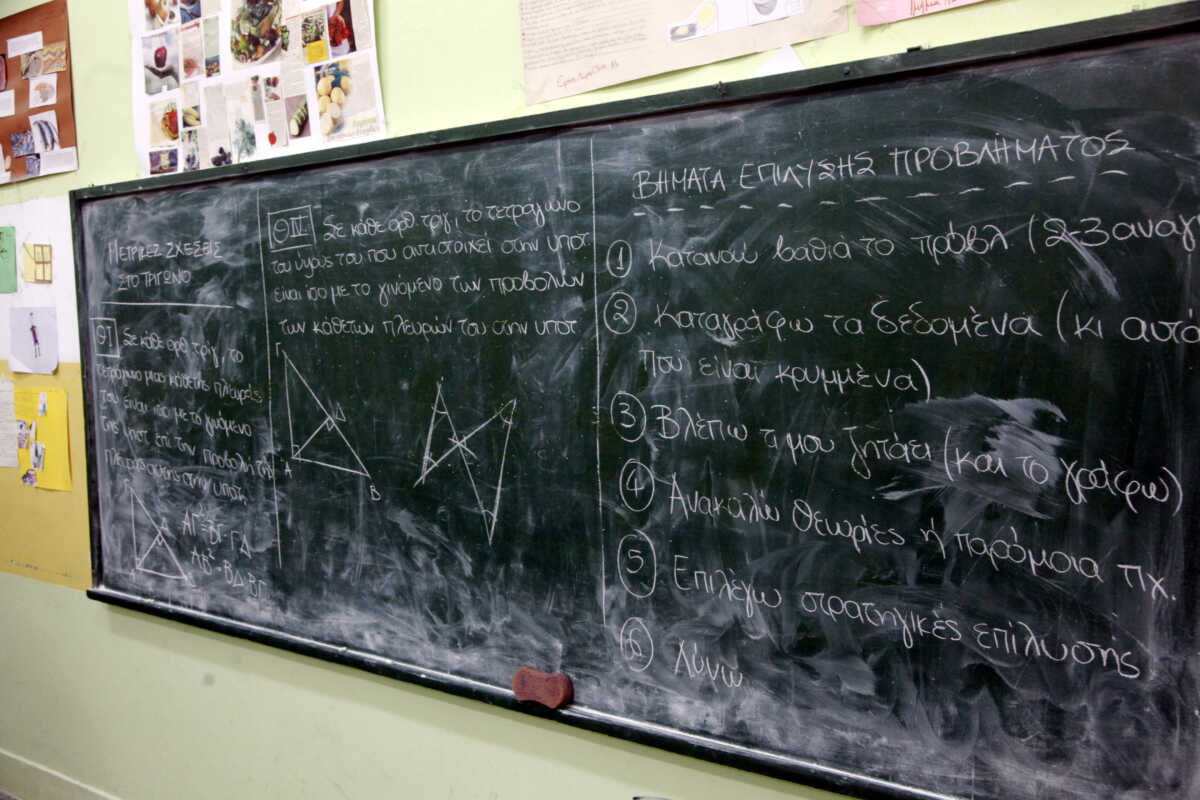 ΜΕΤΡΙΚΕΣ ΣΧΕΣΕΙΣ
ΣΤΟ ΤΡΙΓΩΝΟ
ΘΙ Σε κάθε ορθ. τρίγ, το
τετράγωνο μιας κάθετης πλευράς
του είναι ίσο με το γινόμενο
της υποτ. επί την προβολή της
πλευράς αυτής στην υποτ.
Γ
ΑΓ²=ΒΓ·ΓΔ
ΑΒ²=ΒΔ·ΒΓ
ΘΙΙ Σε κάθε ορθ. τριγ, το τετράγωνο
του ύψους του που αντιστοιχεί στην υποτ
είναι ίσο με το γινόμενο των προβολών
των κάθετων πλευρών του στην υποτ
Γ
Δ
Α
Β
ΒΗΜΑΤΑ ΕΠΙΛΥΣΗΣ ΠΡΟΒΛΗΜΑΤΟΣ
1 Κατανοώ βαθιά το πρόβλ (2-3 αναγ
2 Καταγράφω τα δεδομένα (κι αυτά
που είναι κρυμμένα)
3 Βλέπω τι μου ζητάει (και το γράφω)
4 Ανακαλώ θεωρίες ή παρόμοια πχ.
5 Επιλέγω στρατηγικές επίλυσής
6 Λύνω